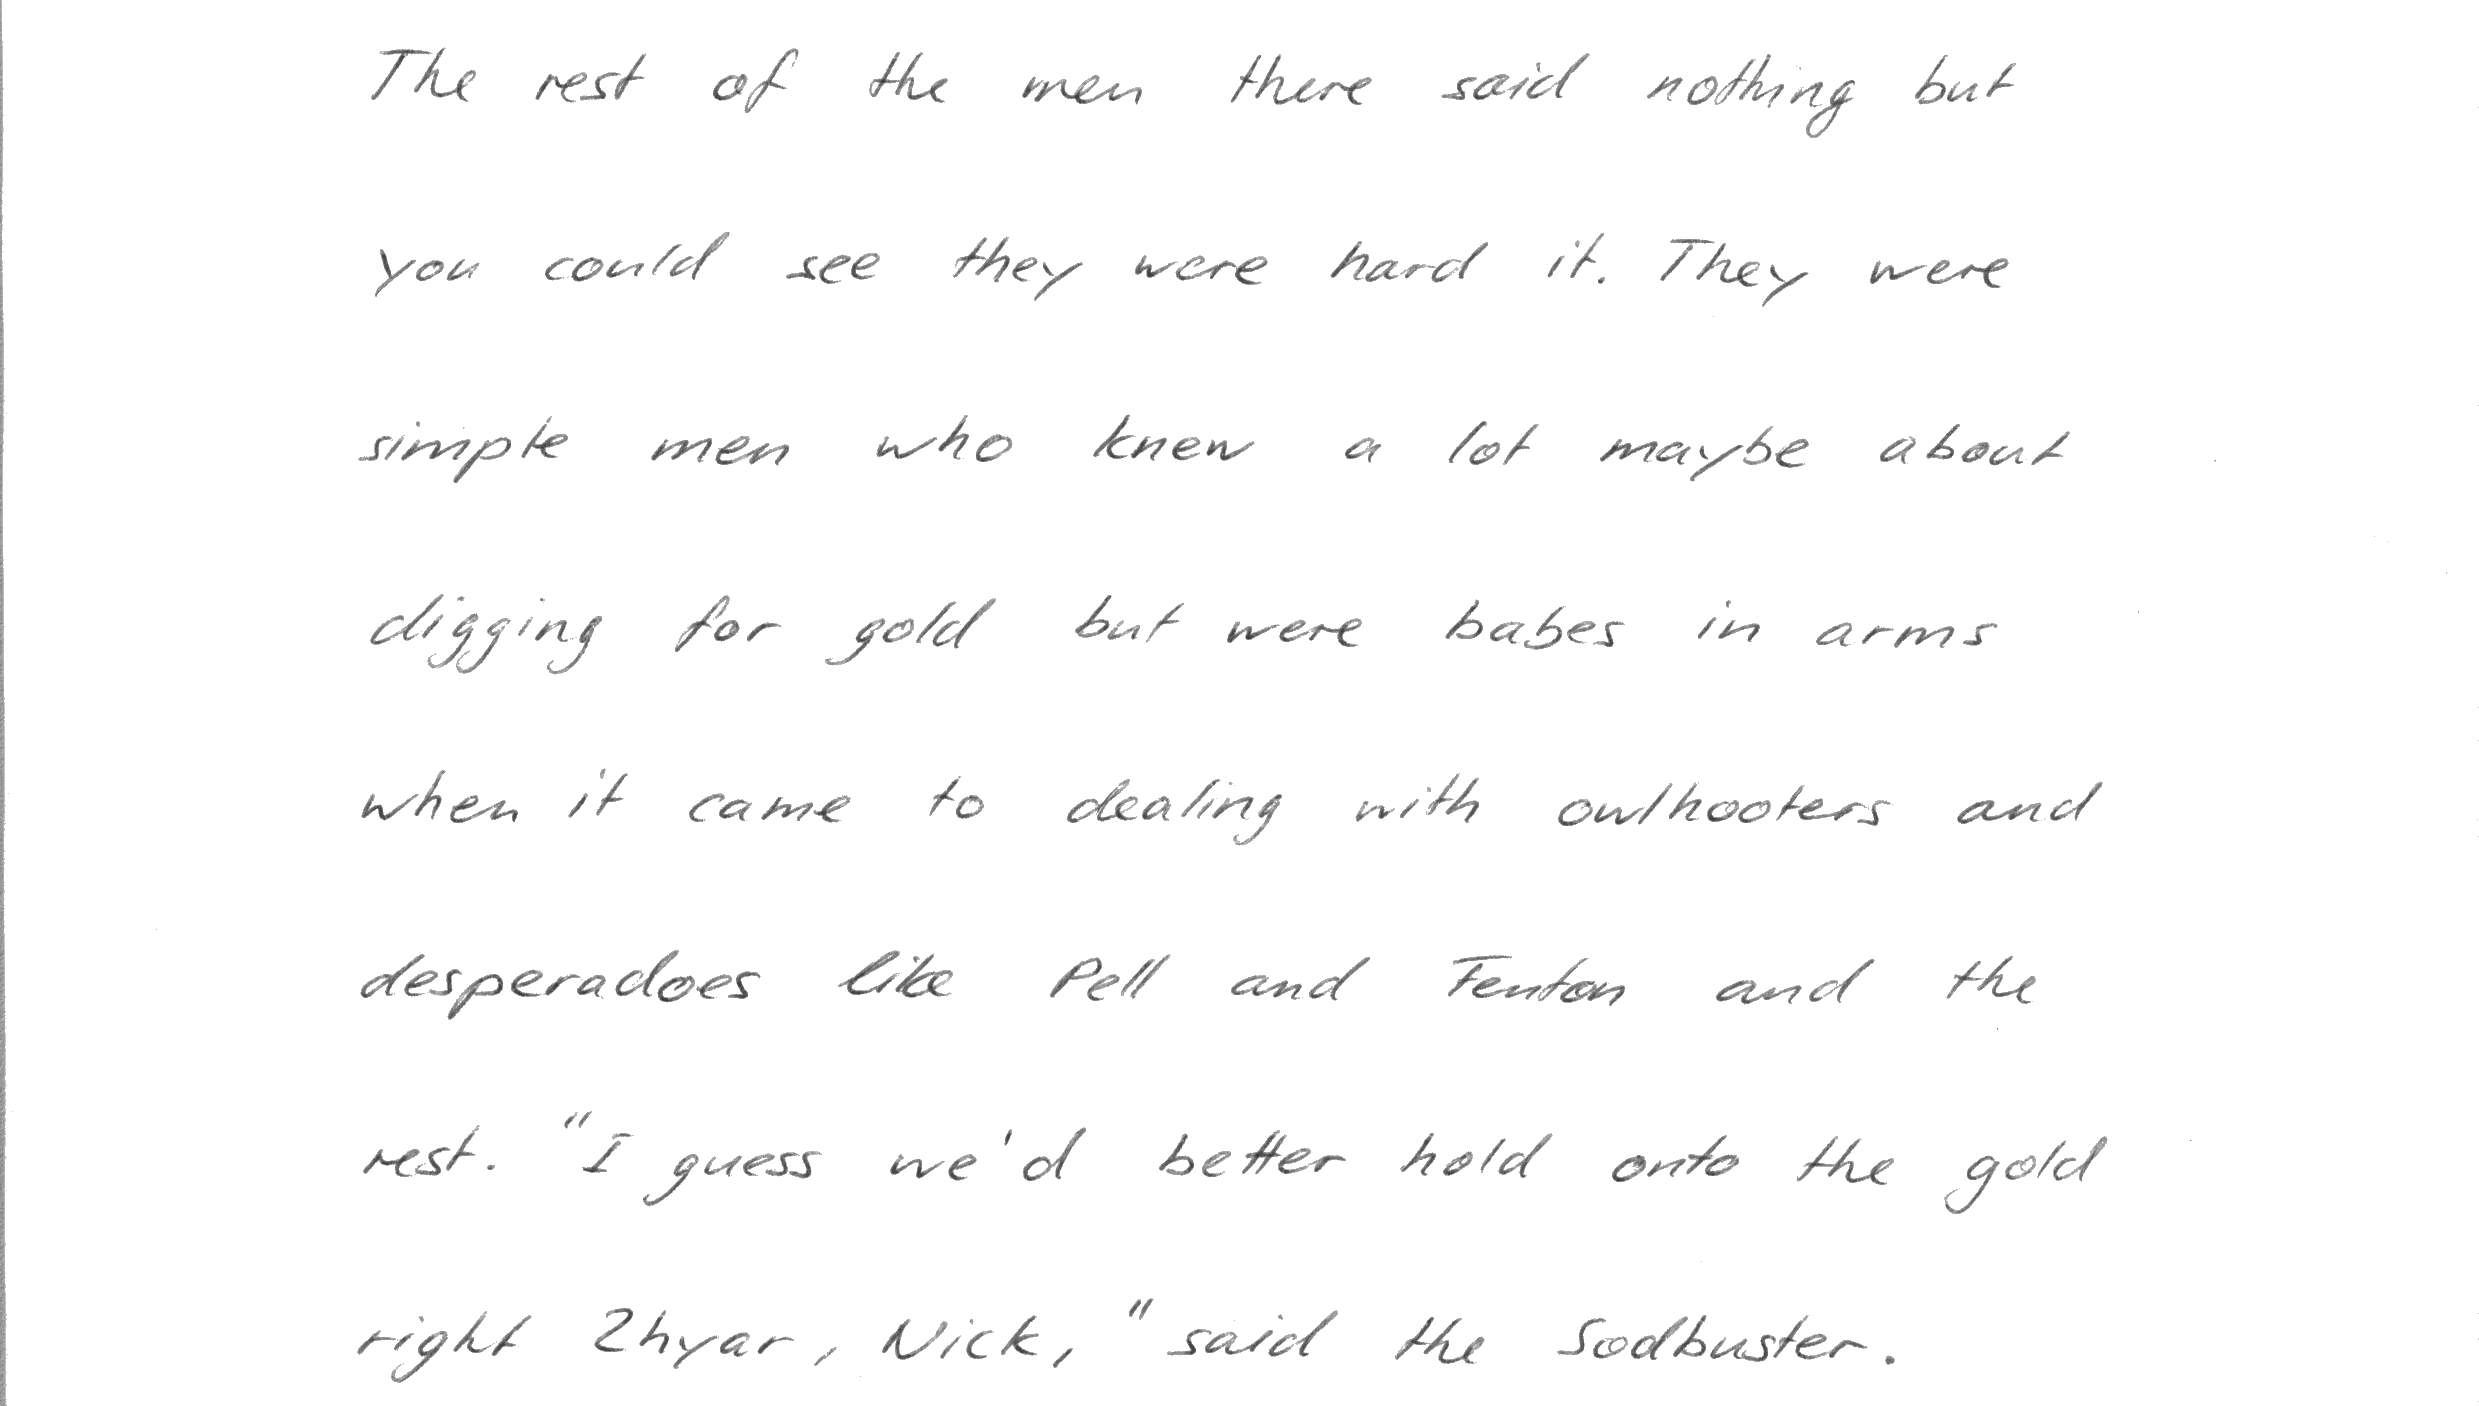 The rest of the men there said nothing but
you could see they were hard it. They were
simple men who knew a lot maybe about
digging for gold but were babes in arms
when it came to dealing with owlhooters and
desperadoes like Pell and Fenton and the
rest. "I guess we'd better hold onto the gold
right 2hyar, Nick," said the Sodbuster.